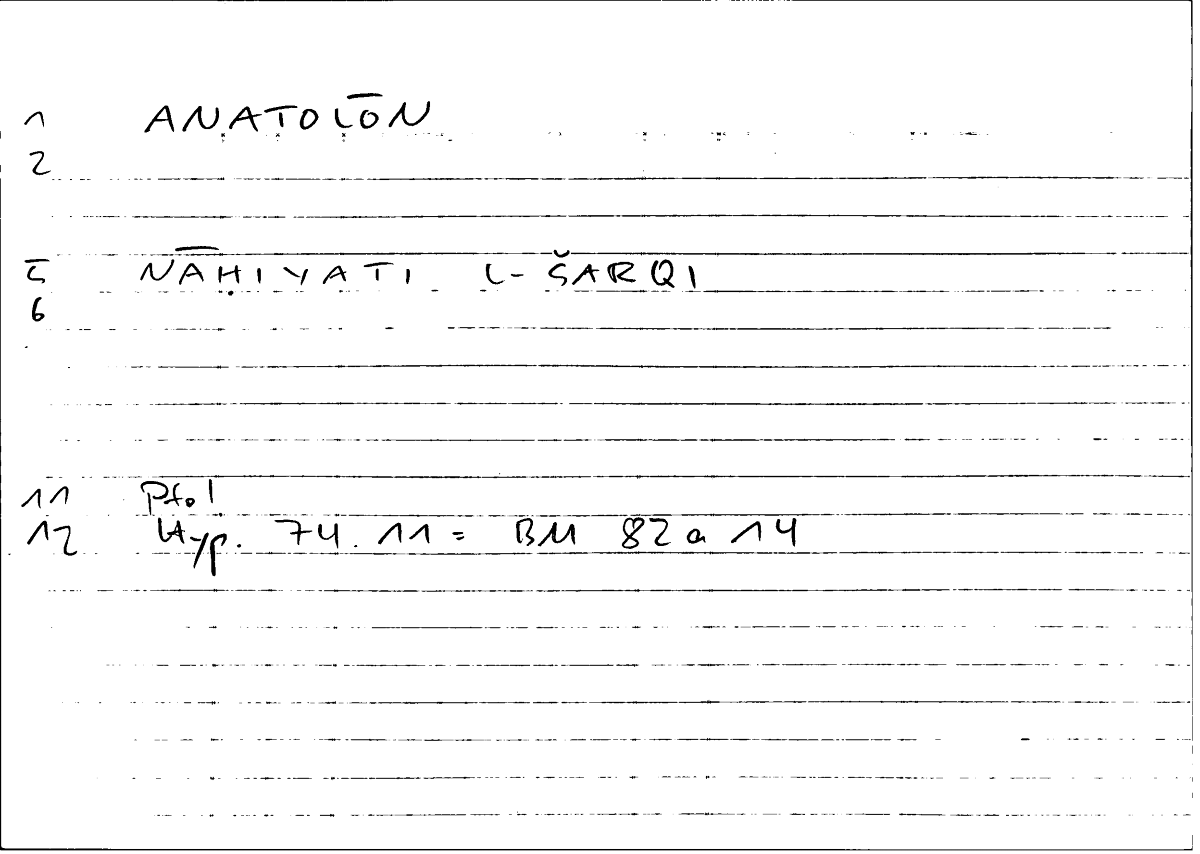 1 ANATOLŌN
2
5 NĀḤIYATI L-ŠARQI
6
11 Ptol
12 Hyp. 74.11 = BM 82a14